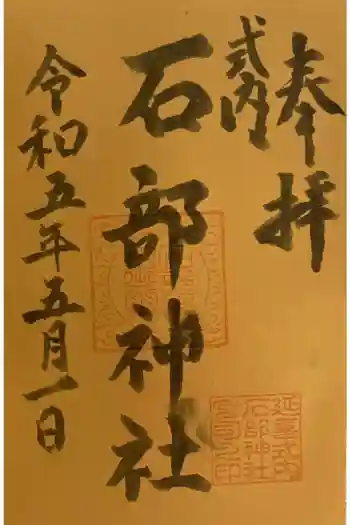 奉拝
式内
石部神社
令和五年五月一日
延喜式内
石部神社
宮司之印